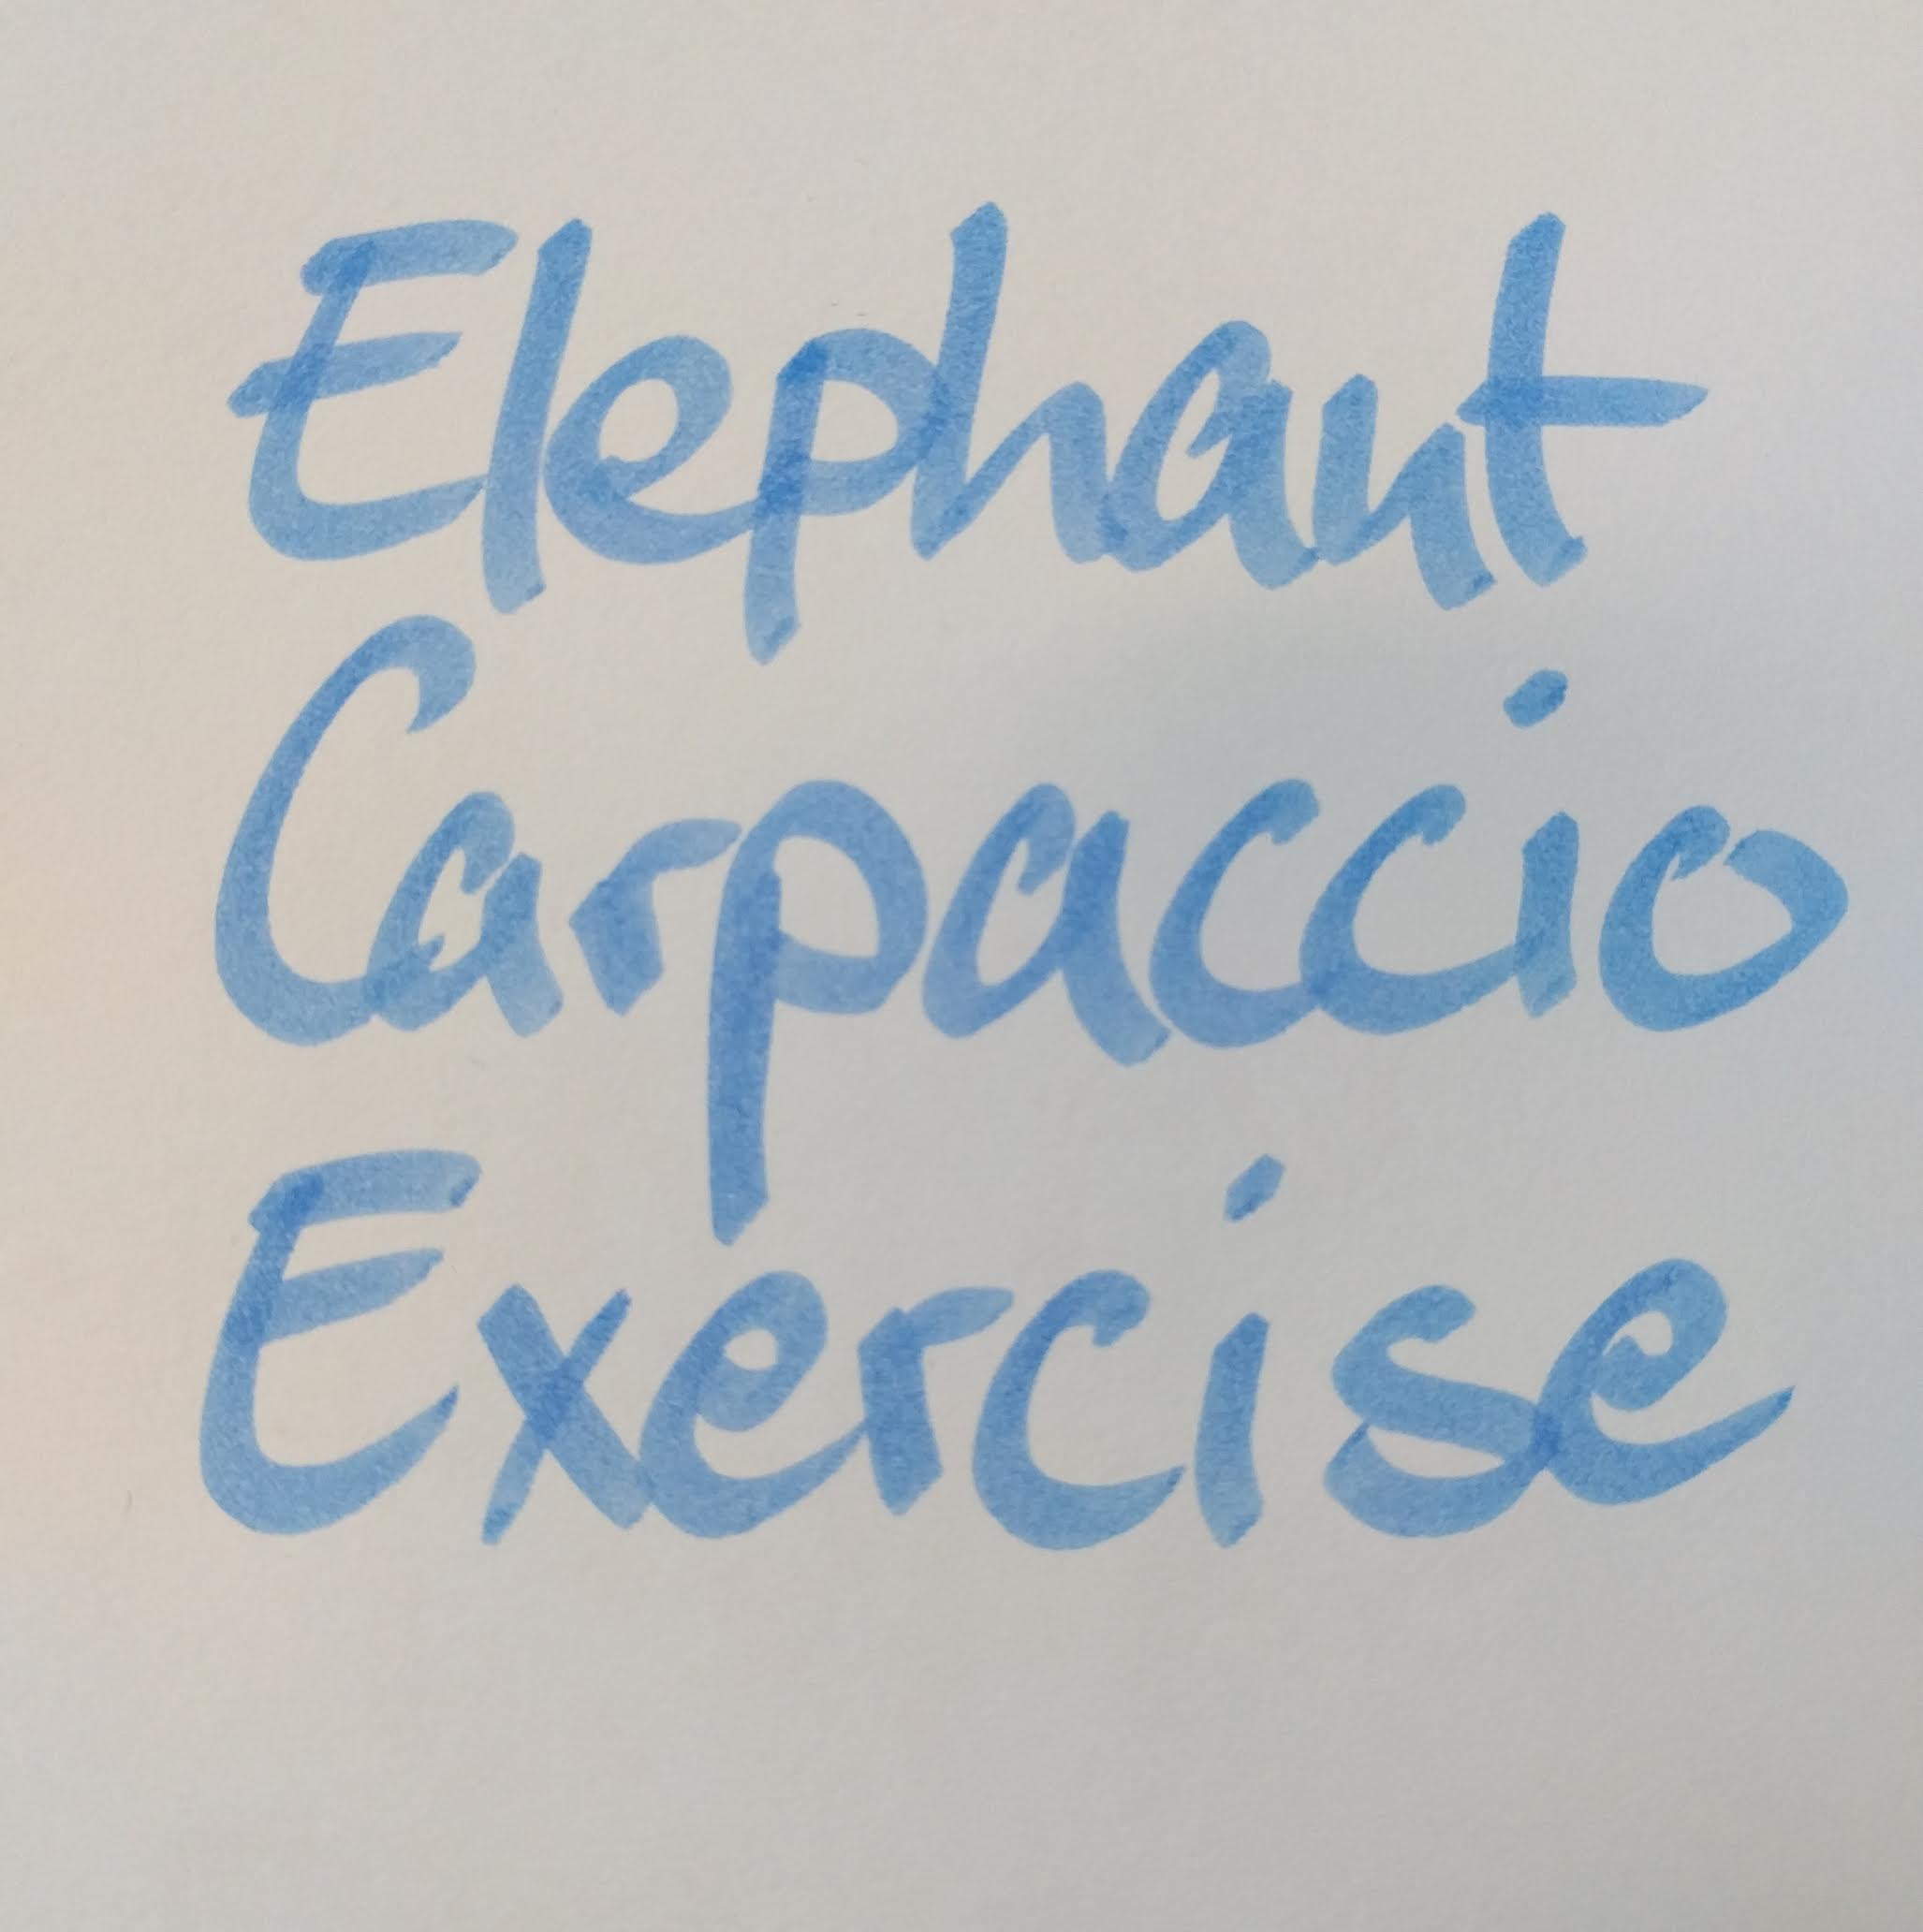 Elephant
Carpaccio
Exercise